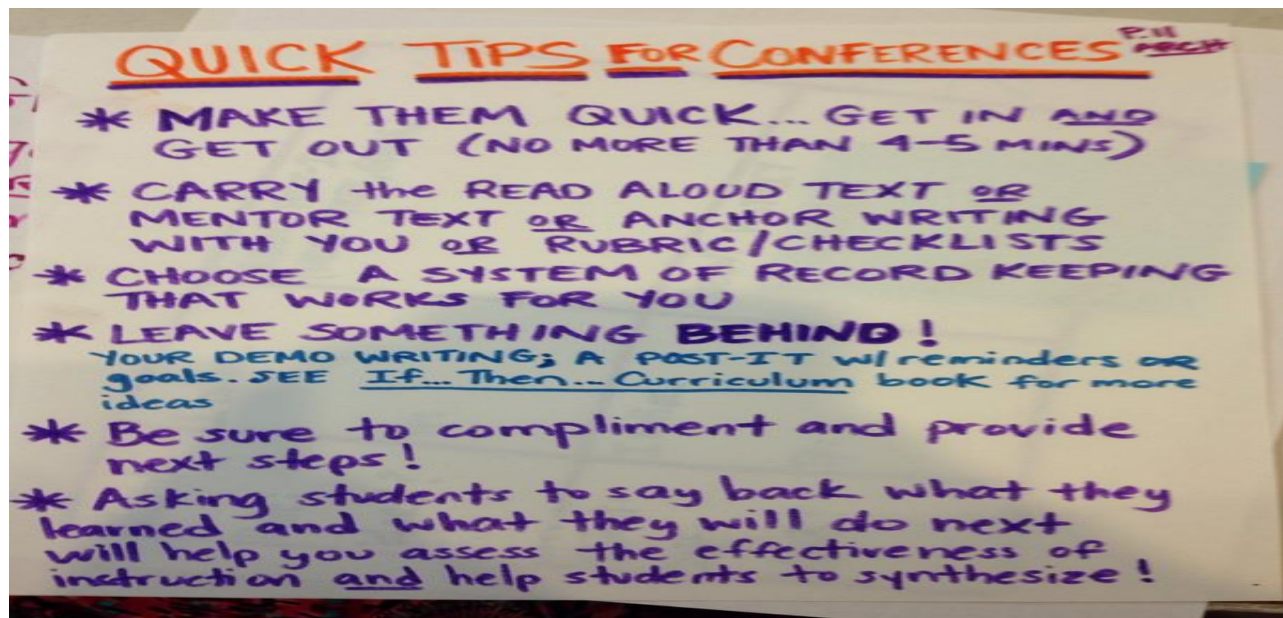 QUICK TIPS FOR CONFERENCES
P.11
* MAKE THEM QUICK... GET IN AND
GET OUT (NO MORE THAN 4-5 MINS)
* CARRY the READ ALOUD TEXT OR
MENTOR TEXT OR ANCHOR WRITING
WITH YOU OR RUBRIC/CHECKLISTS
* CHOOSE A SYSTEM OF RECORD KEEPING
THAT WORKS FOR YOU
* LEAVE SOMETHING BEHIND!
YOUR DEMO WRITING; A POST-IT w/reminders OR
goals. SEE If... Then... Curriculum book for more
ideas
* Be sure to compliment and provide
next steps!
* Asking students to say back what they
learned and what they will do next
will help you assess the effectiveness of
instruction and help students to synthesize!